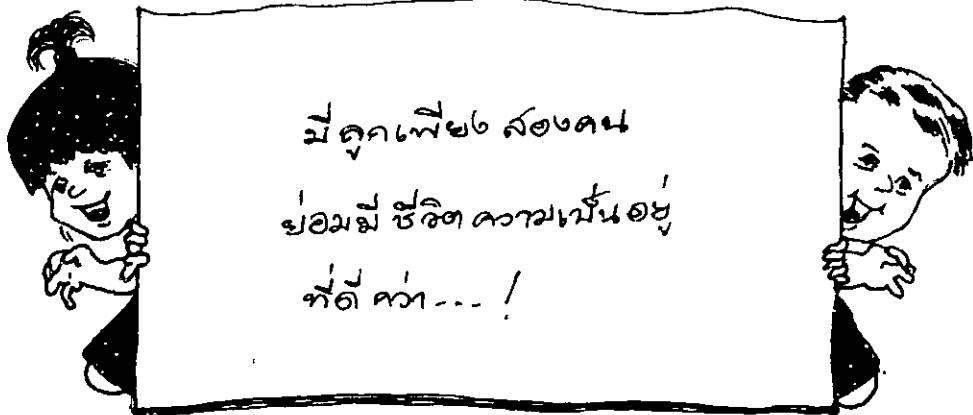 มีลูกเพียง สองคน
ย่อมมี ชีวิต ความเป็นอยู่
ที่ดี กว่า---- !